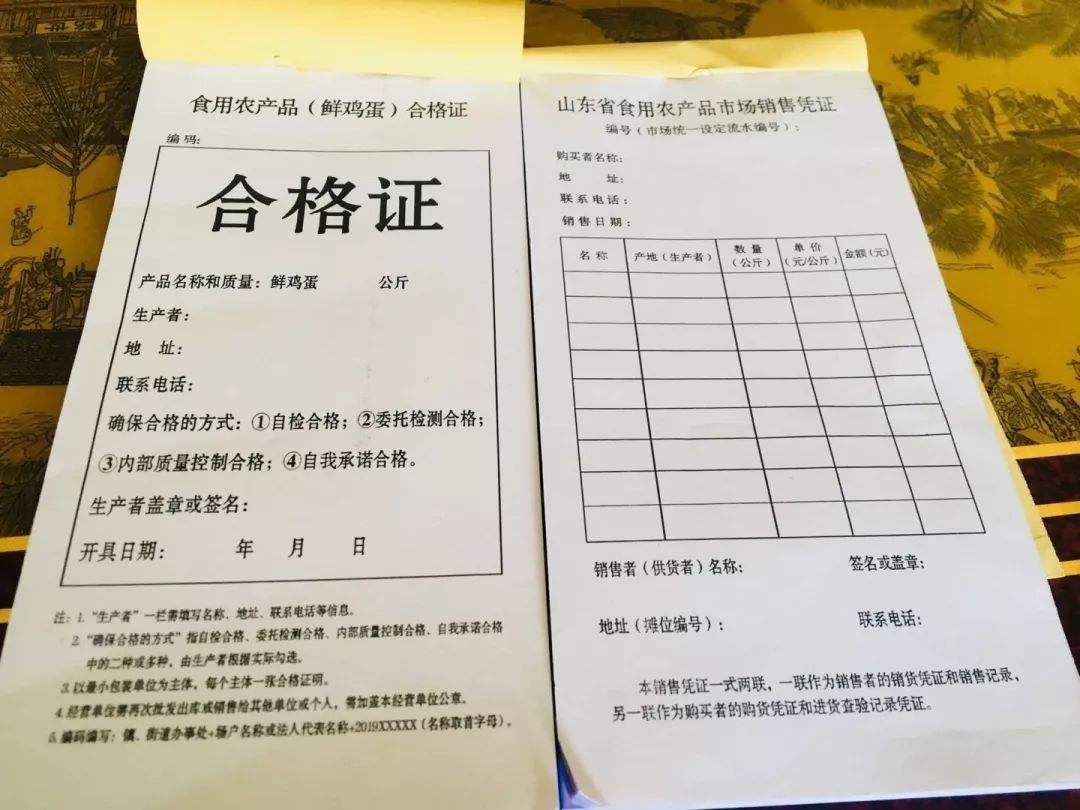 食用农产品（鲜鸡蛋）合格证
编码:
合格证
产品名称和质量：鲜鸡蛋 公斤
生产者：
地 址：
联系电话：
确保合格的方式：①自检合格；②委托检测合格；
③内部质量控制合格；④自我承诺合格。
生产者盖章或签名：
开具日期： 年 月 日
注：1.“生产者”一栏需填写名称、地址、联系电话等信息。
2.“确保合格的方式”指自检合格、委托检测合格、内部质量控制合格、自我承诺合格
中的二种或多种，由生产者根据实际勾选。
3.以最小包装单位为主体，每个主体一张合格证明。
4.经营单位需再次批发出库或销售给其他单位或个人，需加盖本经营单位公章。
5.编码编写：镇、街道办事处+场户名称或法人代表名称+2019XXXXX（名称取首字母）。
山东省食用农产品市场销售凭证
编号（市场统一设定流水编号）：
购买者名称：
地 址：
联系电话：
销售日期：
名称 产地（生产者） 数量（公斤） 单价（元/公斤） 金额（元）
销售者（供货者）名称： 签名或盖章：
地址（摊位编号）： 联系电话：
本销售凭证一式两联，一联作为销售者的销货凭证和销售记录，
另一联作为购买者的购货凭证和进货查验记录凭证。